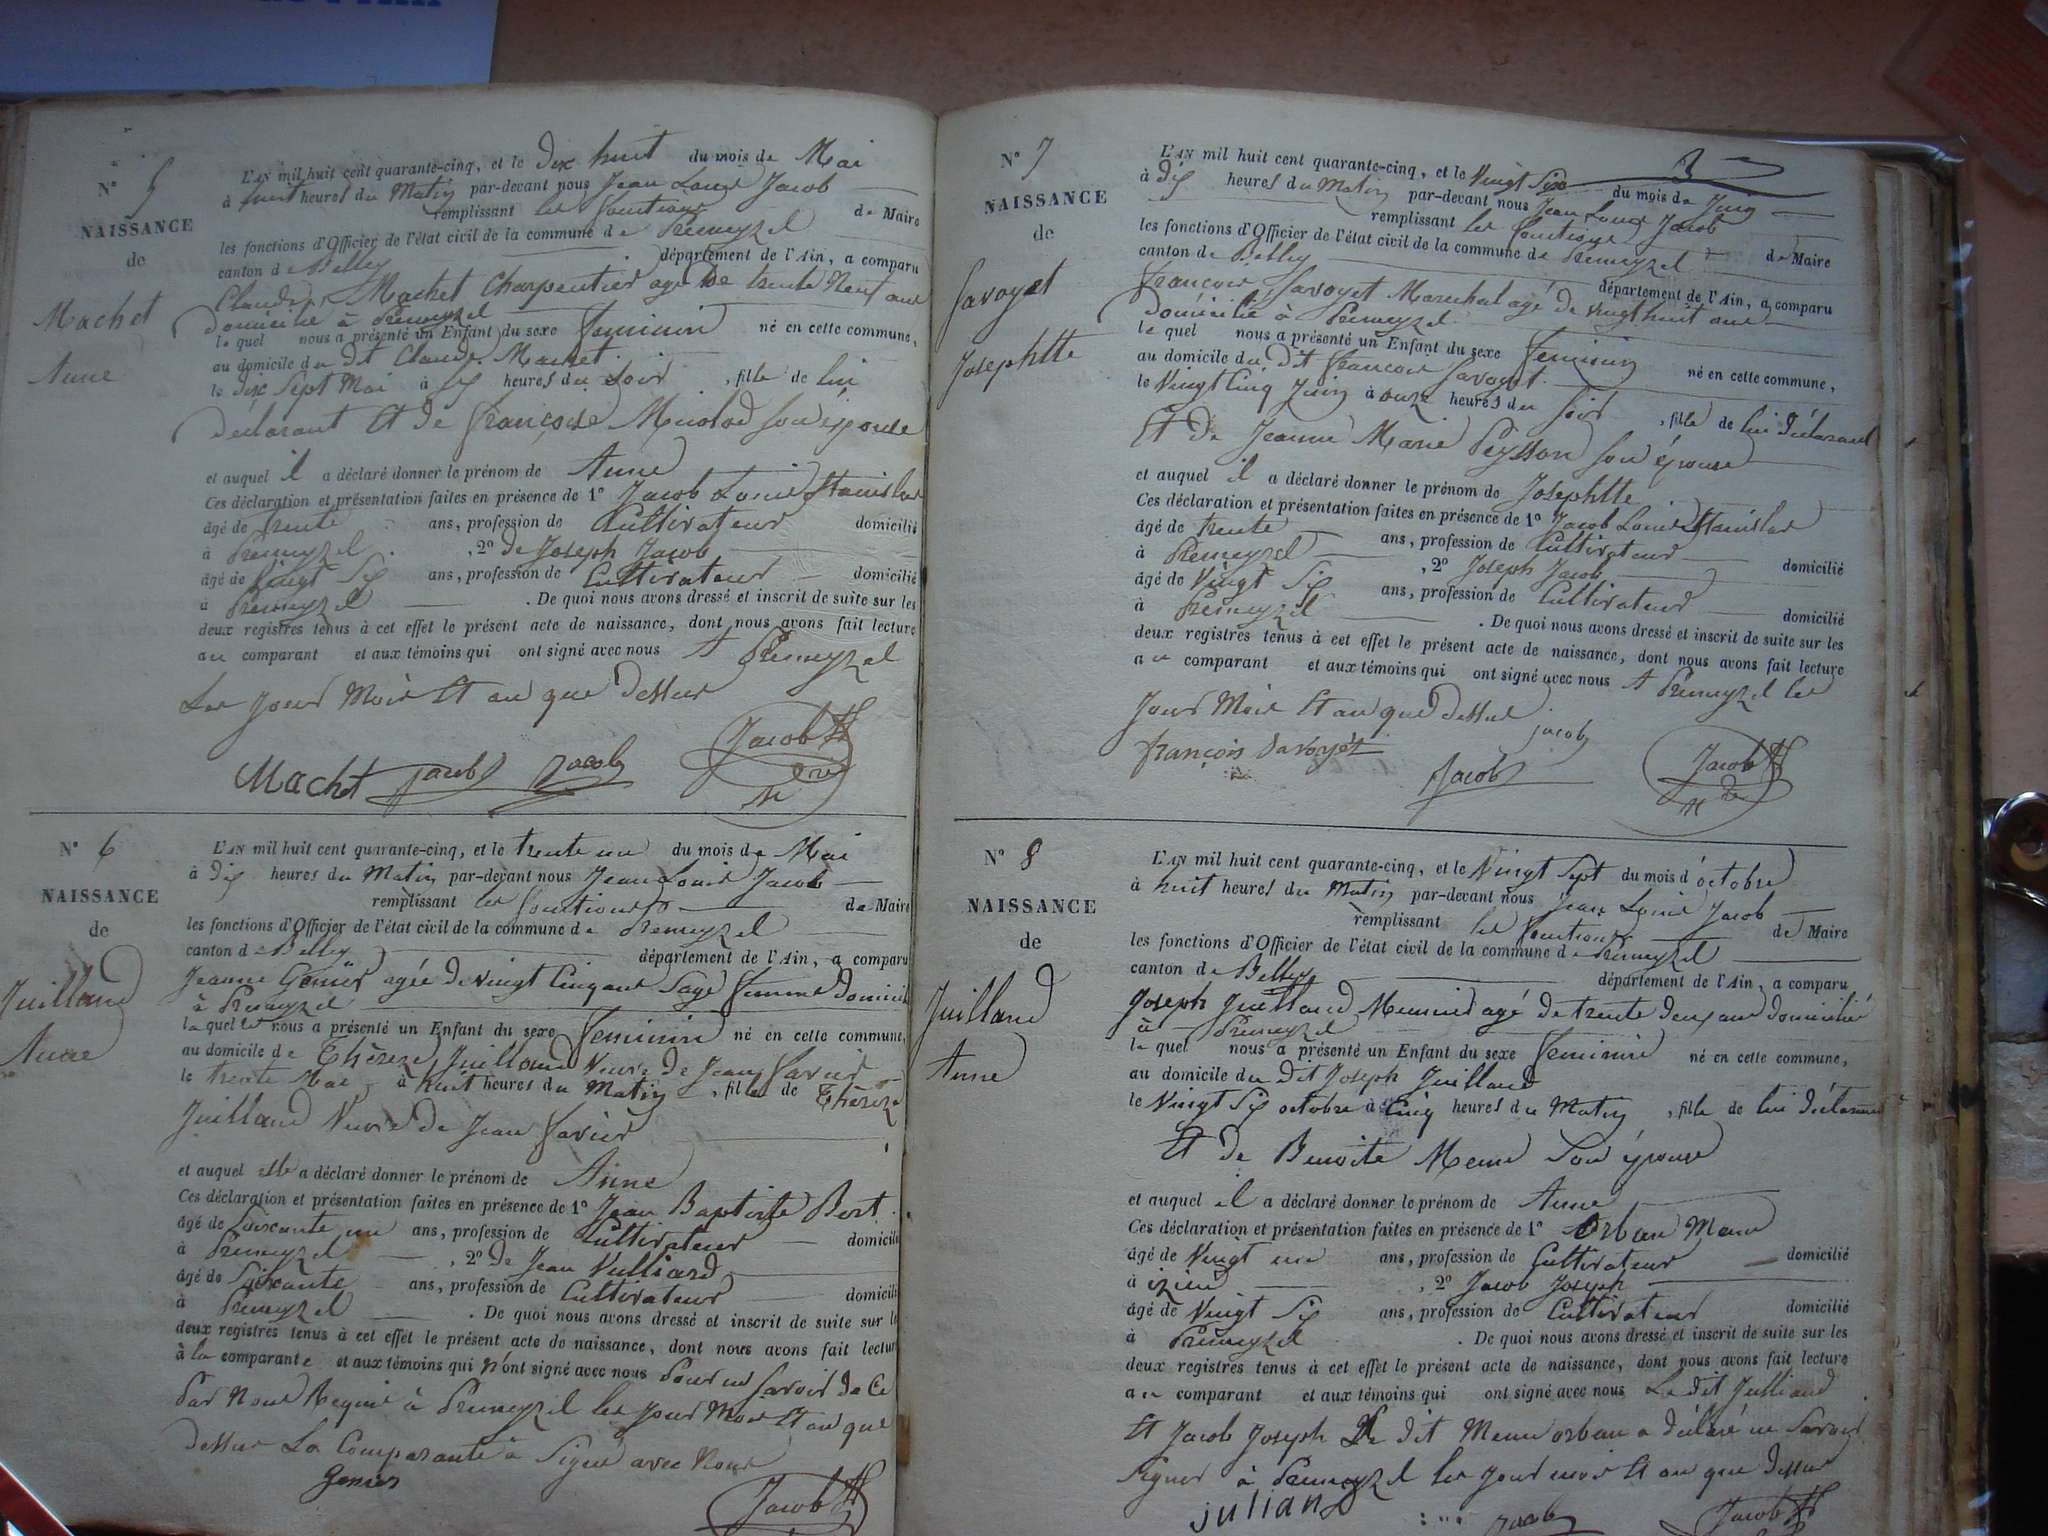 N° 5
NAISSANCE
de
Machet
Anne
L'AN mil huit cent quarante-cinq, et le dix huit du mois de Mai
à huit heures du Matin par-devant nous Jean Louis Jacob
remplissant les fonctions de Maire
les fonctions d'Officier de l'état civil de la commune de Premeyzel
canton de Belley département de l'Ain, a comparu
Claude Machet Charpentier agé de trente Neuf ans
domicilié à Premeyzel
le quel nous a présenté un Enfant du sexe feminin né en cette commune,
au domicile du dit Claude Machet
le dix Sept Mai à six heures du soir, fille de lui
déclarant Et de françoise son épouse
et auquel il a déclaré donner le prénom de Anne
Ces déclaration et présentation faites en présence de 1° Jacob Louis Stanislas
âgé de trente ans, profession de Cultivateur domicilié
à Premeyzel, 2° de Joseph Jacob
âgé de Vingt Six ans, profession de Cultivateur domicilié
à Premeyzel. De quoi nous avons dressé et inscrit de suite sur les
deux registres tenus à cet effet le présent acte de naissance, dont nous avons fait lecture
au comparant et aux témoins qui ont signé avec nous A Premeyzel
Les jour Mois Et an que dessus
Machet Jacob Jacob Jacob
N° 6
NAISSANCE
de
Juilland
Anne
L'AN mil huit cent quarante-cinq, et le trente un du mois de Mai
à dix heures du Matin par-devant nous Jean Louis Jacob
remplissant les fonctions de Maire
les fonctions d'Officier de l'état civil de la commune de Premeyzel
canton de Belley département de l'Ain, a comparu
Jeanne Genier agée de vingt Cinq ans Sage femme
à Premeyzel
laquelle nous a présenté un Enfant du sexe feminin né en cette commune,
au domicile de Thérèze Juilland Veuve de Jean
le trente Mai à huit heures du Matin, fille de Thérèze
Juilland Veuve de Jean
et auquel elle a déclaré donner le prénom de Anne
Ces déclaration et présentation faites en présence de 1° Jean Baptiste Bort
âgé de Soixante un ans, profession de Cultivateur
à Premeyzel, 2° de Jean Vulliard
âgé de Soixante ans, profession de Cultivateur
à Premeyzel. De quoi nous avons dressé et inscrit de suite sur
deux registres tenus à cet effet le présent acte de naissance, dont nous avons fait
à la comparante et aux témoins qui n'ont signé avec nous Pour ne savoir de Ce
Par Nous Requis à Premeyzel les jour Mois Et an que
dessus La Comparante à Signé avec Nous
Genier
Jacob
N° 7
NAISSANCE
de
Savoyet
Josephtte
L'AN mil huit cent quarante-cinq, et le Vingt Six du mois de Juin
à dix heures du Matin par-devant nous Jean Louis Jacob
remplissant les fonctions de Maire
les fonctions d'Officier de l'état civil de la commune de Premeyzel
canton de Belley département de l'Ain, a comparu
françois Savoyet Marechal agé de vingt huit ans
Domicilié à Premeyzel
le quel nous a présenté un Enfant du sexe feminin né en cette commune,
au domicile du dit françois Savoyet
le Vingt Cinq Juin à onze heures du soir, fille de lui déclarant
Et de Jeanne Marie Peysson son épouse
et auquel il a déclaré donner le prénom de Josephtte
Ces déclaration et présentation faites en présence de 1° Jacob Louis Stanislas
âgé de trente ans, profession de Cultivateur domicilié
à Premeyzel, 2° Joseph Jacob
âgé de Vingt Six ans, profession de Cultivateur domicilié
à Premeyzel. De quoi nous avons dressé et inscrit de suite sur les
deux registres tenus à cet effet le présent acte de naissance, dont nous avons fait lecture
au comparant et aux témoins qui ont signé avec nous A Premeyzel les
Jour Mois Et an que dessus
françois Savoyet Jacob jacob Jacob
N° 8
NAISSANCE
de
Juilland
Anne
L'AN mil huit cent quarante-cinq, et le Vingt Sept du mois d'octobre
à huit heures du Matin par-devant nous Jean Louis Jacob
remplissant les fonctions de Maire
les fonctions d'Officier de l'état civil de la commune de Premeyzel
canton de Belley département de l'Ain, a comparu
Joseph Juilland Meunier agé de trente deux ans domicilié
à Premeyzel
le quel nous a présenté un Enfant du sexe feminin né en cette commune,
au domicile du dit Joseph Juilland
le Vingt Six octobre à Cinq heures du Matin, fille de lui déclarant
Et de Benoite son épouse
et auquel il a déclaré donner le prénom de Anne
Ces déclaration et présentation faites en présence de 1° Orban
âgé de Vingt un ans, profession de Cultivateur domicilié
à izieu, 2° Jacob Joseph
âgé de Vingt Six ans, profession de Cultivateur domicilié
à Premeyzel. De quoi nous avons dressé et inscrit de suite sur les
deux registres tenus à cet effet le présent acte de naissance, dont nous avons fait lecture
au comparant et aux témoins qui ont signé avec nous Le dit Julliand
Et Jacob Joseph Le dit orban a déclaré ne savoir
signer à Premeyzel les jour mois Et an que dessus
julian Jacob Jacob